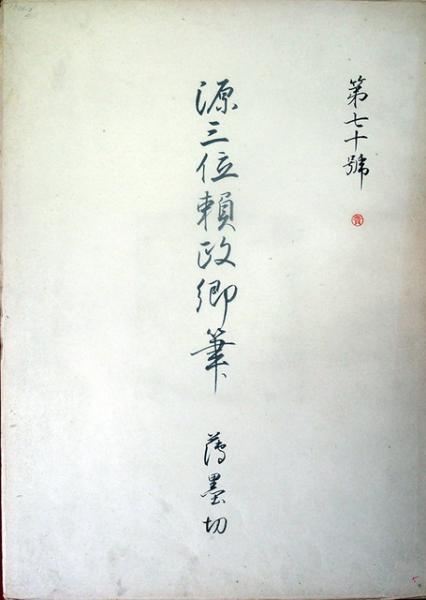 第七十號
源三位頼政卿筆
薄墨切